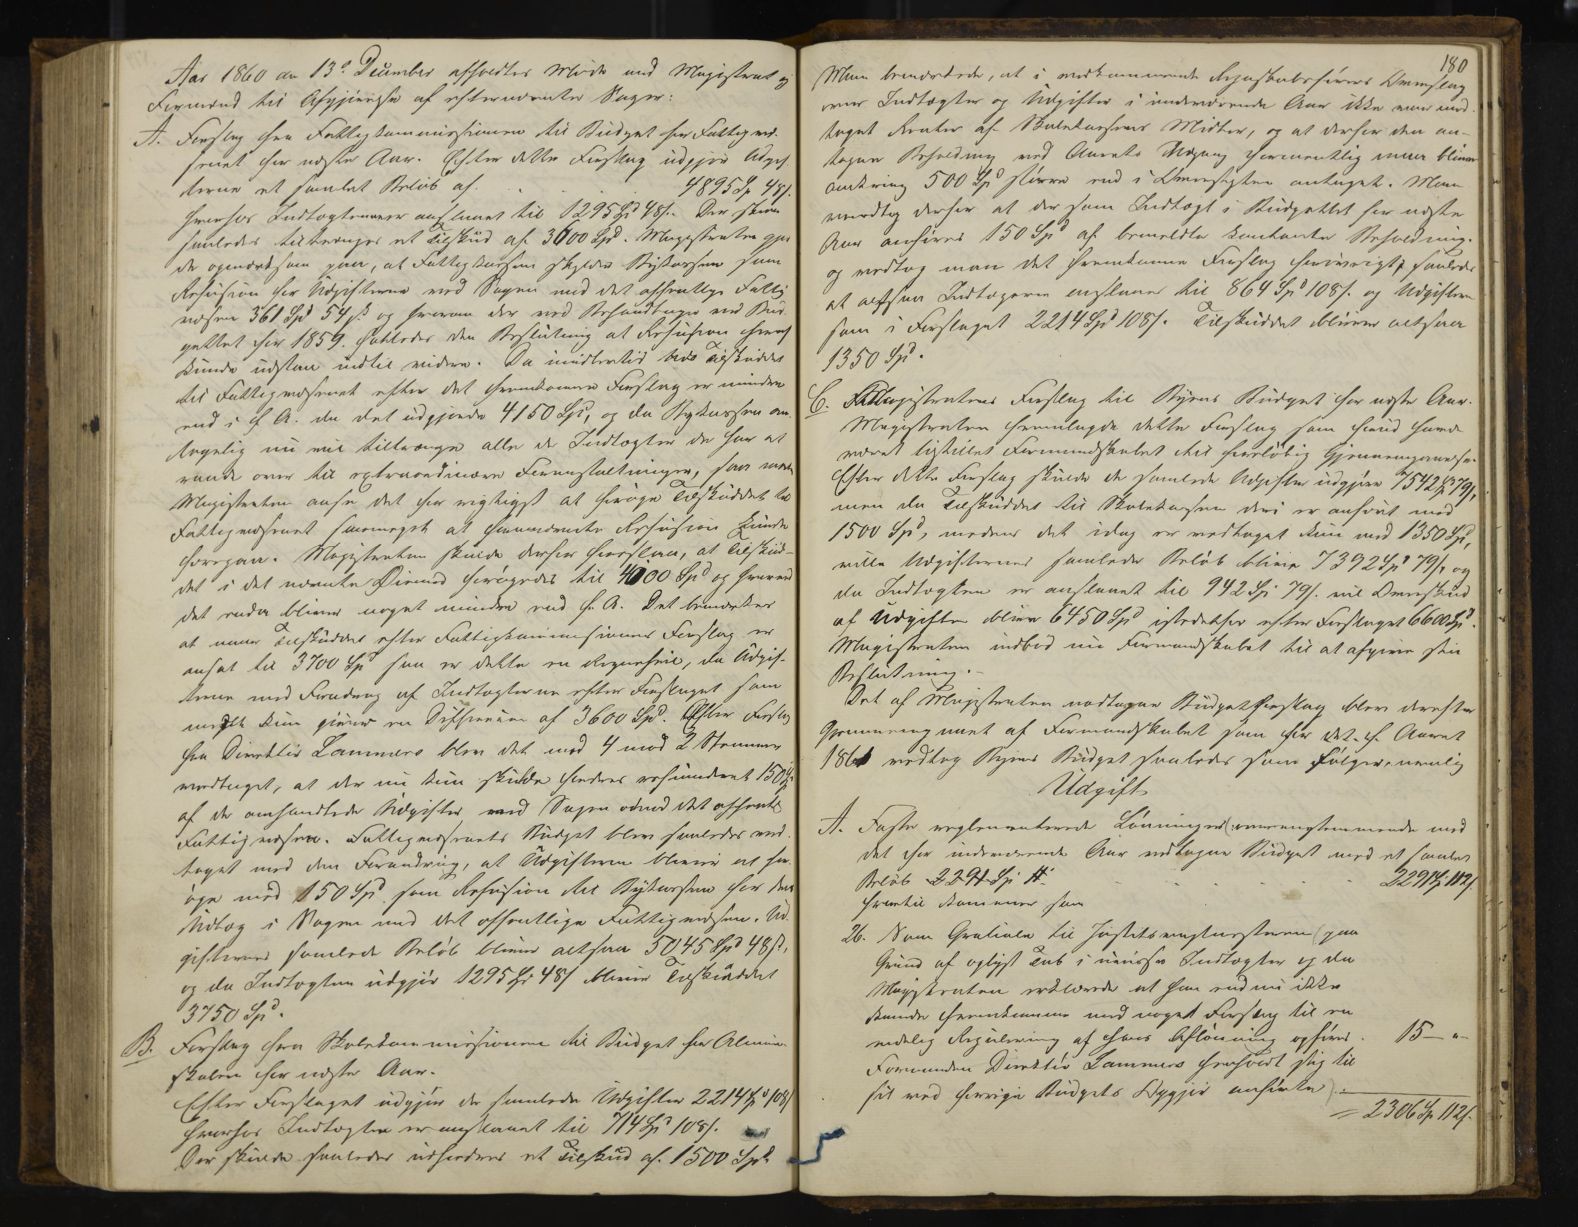 Aar 1860 den 13de December afholdtes Møde med Magistrat og
Formænd til Afgjørelse af efternævnte Sager:
A. Forslag fra Fattigkommissionen til Budget for Fattigvæ-
senet for næste Aar. Efter dette Forslag udgjør Udgif-
terne et samlet Beløb af . . . 4895 Spd 48 s.
hvorfor Indtægterne er anslaaet til 1295 Spd 48 s. Der skulde
saaledes tiltrænges et Tilskud af 3600 Spd. Magistraten gjorde
opmærksom paa, at Fattigkassen skylder Bykassen som
Refusion for Udgifterne ved Sagen med det offentlige Fattig-
væsen 361 Spd 54 s og hvorom der ved Behandlingen ved Bud-
gettet for 1859 fattedes den Beslutning at Refusion heraf
kunde udstaa indtil videre. Da imidlertid Tilskuddet
til Fattigvæsenet efter det fremkomne Forslag er mindre
end i f. A. da det udgjorde 4150 Spd, og da Bykassen an-
tagelig nu vil tiltrænge alle de Indtægter den har at
raade over til extraordinære Foranstaltninger, saa
Magistraten anse det for rigtigst at forøge Tilskuddet til
Fattigvæsenet saameget at fornævnte Refusion kunde
foregaa. Magistraten skulde derfor foreslaa, at Tilskud-
det i det nævnte Øiemed forøgedes til 4000 Spd og hvorved
det endda bliver noget mindre end f. A. Det bemærkes
at naar Tilskuddet efter Fattigkommissionens Forslag er
ansat til 3700 Spd saa er dette en Regnefeil, da Udgif-
terne med Fradrag af Indtægterne efter Forslaget som
meldt kun giver en Difference af 3600 Spd. Efter Forslag
fra Direktør Lammers blev det med 4 mod 2 Stemmer
vedtaget, at der nu kun skulde foreslaaes refunderet 150 Spd
af de omhandlede Udgifter ved Sagen mod det offentl.
Fattigvæsen. Fattigvæsenets Budget blev saaledes ved-
taget med den Forandring, at Udgifterne bliver at for-
øge med 150 Spd som Refusion til Bykassen for dens
Udlæg i Sagen med det offentlige Fattigvæsen. Ud-
gifternes samlede Beløb bliver altsaa 5045 Spd 48 s.,
og da Indtægten udgjør 1295 Spd 48 s bliver Tilskuddet
3750 Spd.
B. Forslag fra Skolekommissionen til Budget for Almue-
skolen for næste Aar.
Efter Forslaget udgjør de samlede Udgifter 2214 Spd 108 s
hvorfor Indtægten er anslaaet til 714 Spd 108 s.
Der skulde saaledes udfordres et Tilskud af 1500 Spd.
180
Man bemærkede, at i vedkommende Regnskabsførers Overslag
over Indtægter og Udgifter i indeværende Aar ikke var med-
taget Renter af Skolekassens Midler, og at derfor den an-
tagne Beholdning ved Aarets Udgang formentlig maa blive
omkring 500 Spd større end i Oversigten antaget. Man
vedtog derfor at der som Indtægt i Budgettet for næste
Aar anføres 150 Spd af bemeldte kontante Beholdning.
og vedtog man det fremkomne Forslag forøvrigt saaledes
at altsaa Indtægterne anslaaes til 864 Spd 108 s. og Udgifterne
som i Forslaget 2214 Spd 108 s. Tilskuddet bliver altsaa
1350 Spd.
C. Magistratens Forslag til Byens Budget for næste Aar.
Magistraten fremlagde dette Forslag som havde
været tilstillet Formandskabet til foreløbig Gjennemgaaelse.
Efter dette Forslag skulde de samlede Udgifter udgjøre 7542 Spd 79 s,
men da Tilskuddet til Skolekassen deri er anført med
1500 Spd, medens det idag er vedtaget kun med 1350 Spd,
ville Udgifternes samlede Beløb blive 7392 Spd 79 s, og
da Indtægten er anslaaet til 942 Spd 79 s. vil Overskud
af Udgifter blive 6450 Spd istedetfor efter Forslaget 6600 Spd.
Magistraten indbød nu Formandskabet til at afgive sin
Beslutning.
Det af Magistraten modtagne Budgetforslag blev derefter
gjennemgaaet af Formandskabet som for det Aaret
1861 vedtog Byens Budget saaledes som følger, nemlig
Udgift
A. Faste reglementerede Lønninger (overensstemmende med
det for indeværende Aar vedtagne Budget med et samlet
Beløb 2291 Spd . . . 2291 Spd 112 s
hvortil kommer som
26. Som Gratiale til Justitsvagtmesteren (paa
Grund af oplyst Tab i uvisse Indtægter og da
Magistraten erklærede at han endnu ikke
kunde fremkomme med noget Forslag til en
endelig Regulering af hans Aflønning opføres . 15 — "
Formanden Direktør Lammers henholdt sig til
sit ved forrige Budgets Opgjør anførte).
= 2306 Spd 112 s.